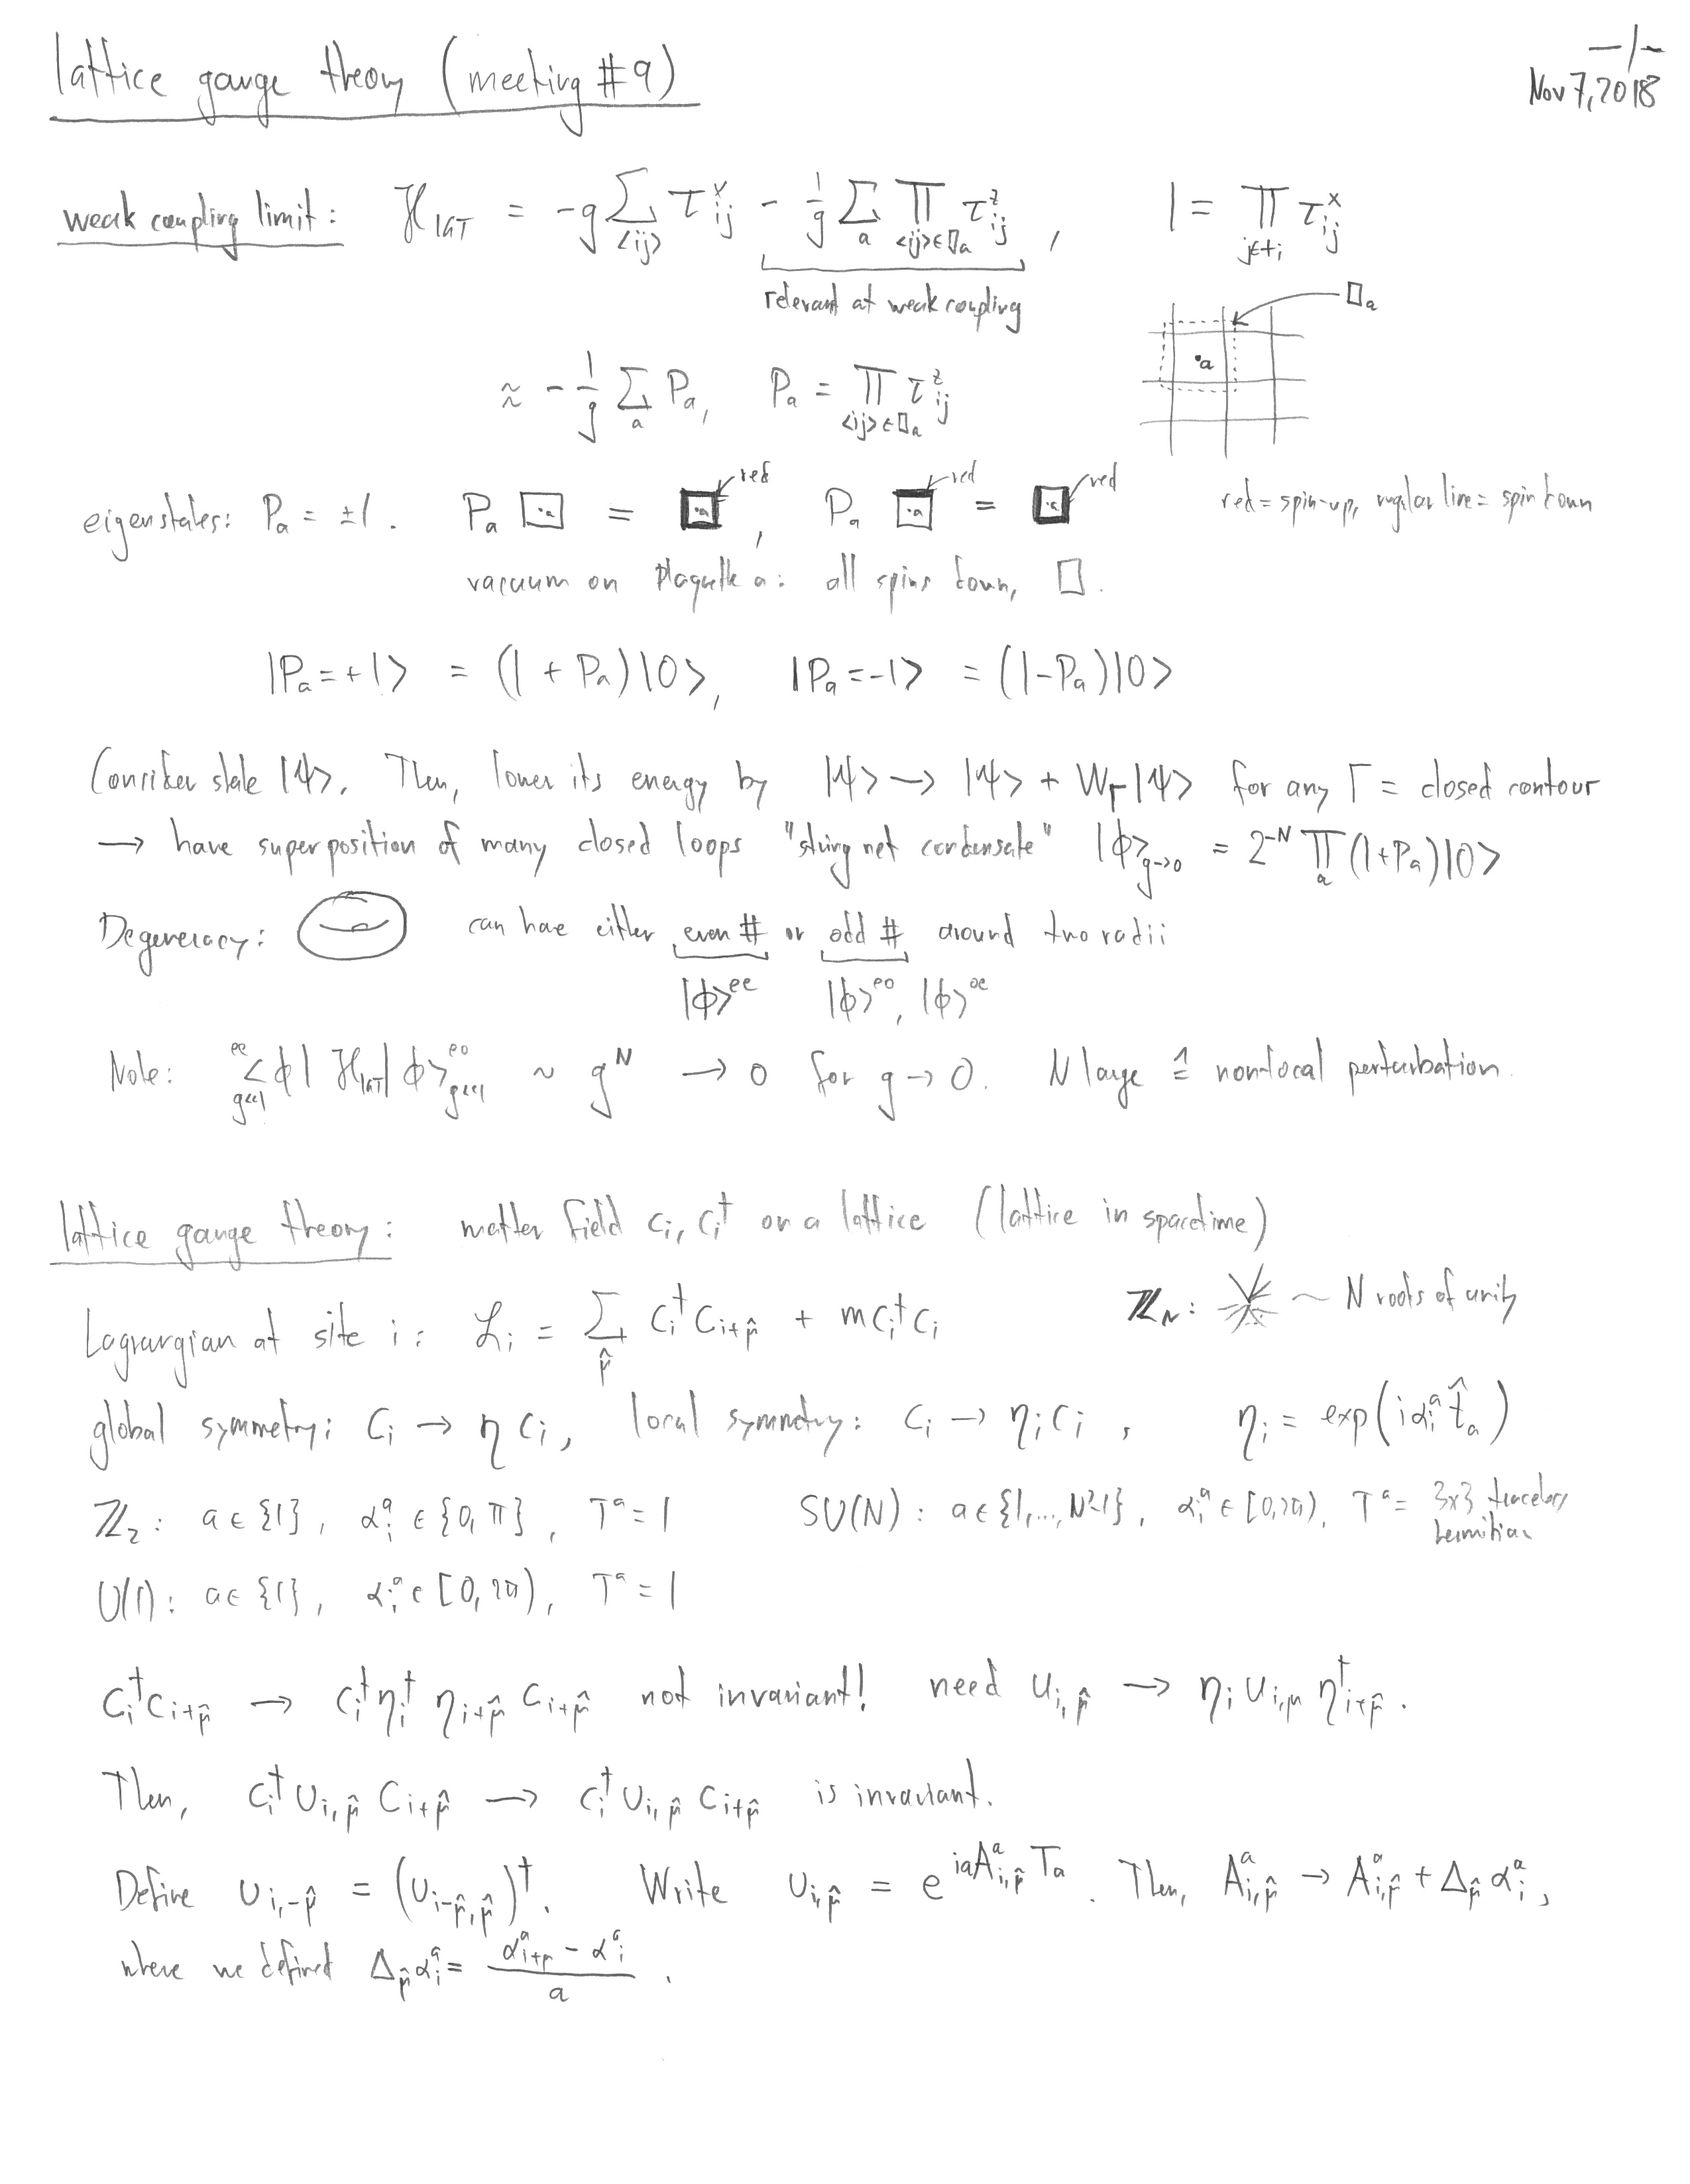 lattice gauge theory (meeting #9)
—/—
Nov 7, 2018
weak coupling limit: ℋ_IGT = -g ∑_<ij> τ^x_ij - 1/g ∑_a ∏_<ij>∈□_a τ^z_ij , 1 = ∏_j∈+_i τ^x_ij
relevant at weak coupling
□_a
·a
≈ - 1/g ∑_a P_a, P_a = ∏_<ij>∈□_a τ^z_ij
eigenstates: P_a = ±1. P_a □ = □, P_a □ = □ red=spin-up, regular line = spin down
red red red
·a ·a ·a ·a
vacuum on plaquette a: all spins down, □.
|P_a=+1> = (1 + P_a)|0>, |P_a=-1> = (1-P_a)|0>
Consider state |ψ>. Then, lower its energy by |ψ> → |ψ> + W_Γ|ψ> for any Γ = closed contour
→ have superposition of many closed loops "string net condensate" |ϕ>_g→0 = 2^-N ∏_a (1+P_a)|0>
Degeneracy: can have either even # or odd # around two radii
|ϕ>^ee |ϕ>^eo, |ϕ>^oe
Note: ^ee_g≪1<ϕ| ℋ_IGT |ϕ>^eo_g≪1 ~ g^N → 0 for g → 0. N large ≙ non-local perturbation.
lattice gauge theory: matter field c_i, c_i^† on a lattice (lattice in spacetime)
ℤ_N: ~ N roots of unity
Lagrangian at site i: ℒ_i = ∑_μ̂ c_i^† c_i+μ̂ + m c_i^† c_i
global symmetry: c_i → η c_i, local symmetry: c_i → η_i c_i , η_i = exp(iα_i^a t̂_a)
ℤ_2: a ∈ {1}, α_i^a ∈ {0, π}, T^a = 1 SU(N): a ∈ {1,..., N²-1}, α_i^a ∈ [0,2π), T^a = 3x3 traceless
hermitian
U(1): a ∈ {1}, α_i^a ∈ [0, 2π), T^a = 1
c_i^† c_i+μ̂ → c_i^† η_i^† η_i+μ̂ c_i+μ̂ not invariant! need U_i,μ̂ → η_i U_i,μ η^†_i+μ̂ .
Then, c_i^† U_i,μ̂ c_i+μ̂ → c_i^† U_i,μ̂ c_i+μ̂ is invariant.
Define U_i,-μ̂ = (U_i-μ̂,μ̂)^†. Write U_i,μ̂ = e^iaA^a_i,μ̂ T_a . Then, A^a_i,μ̂ → A^a_i,μ̂ + Δ_μ̂ α_i^a ,
where we defined Δ_μ̂ α_i^a = (α^a_i+μ - α^a_i)/a .